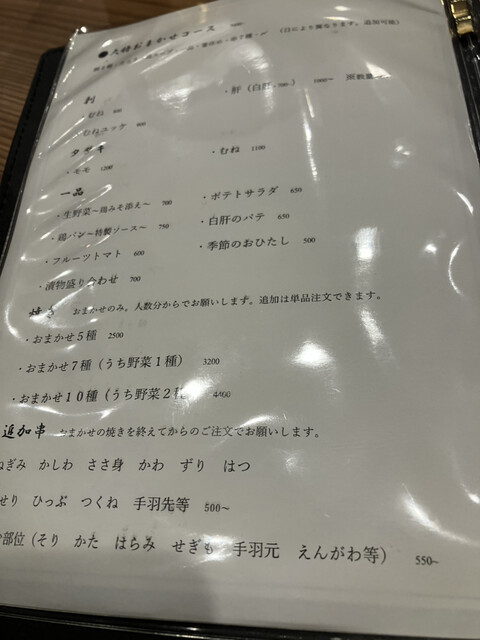 おまかせコース
(日により異なります。追加可能)
刺
・むね 800
・肝(白肝 ~) ~ ※数量
・むねユッケ 900
タタキ
・むね 1100
・モモ 1200
一品
・ポテトサラダ 650
・生野菜~鶏みそ添え~ 700
・白肝のパテ 650
・鶏パン~特製ソース~ 750
・季節のおひたし 500
・フルーツトマト 600
・漬物盛り合わせ 700
焼き おまかせのみ。人数分からでお願いします。追加は単品注文できます。
・おまかせ5種 2500
・おまかせ7種(うち野菜1種) 3200
・おまかせ10種(うち野菜2種 4400
追加串 おまかせの焼きを終えてからのご注文でお願いします。
ねぎみ かしわ ささ身 かわ ずり はつ
せせり ひっぷ つくね 手羽先等 500~
部位(そり かた はらみ せぎも 手羽元 えんがわ等) 550~